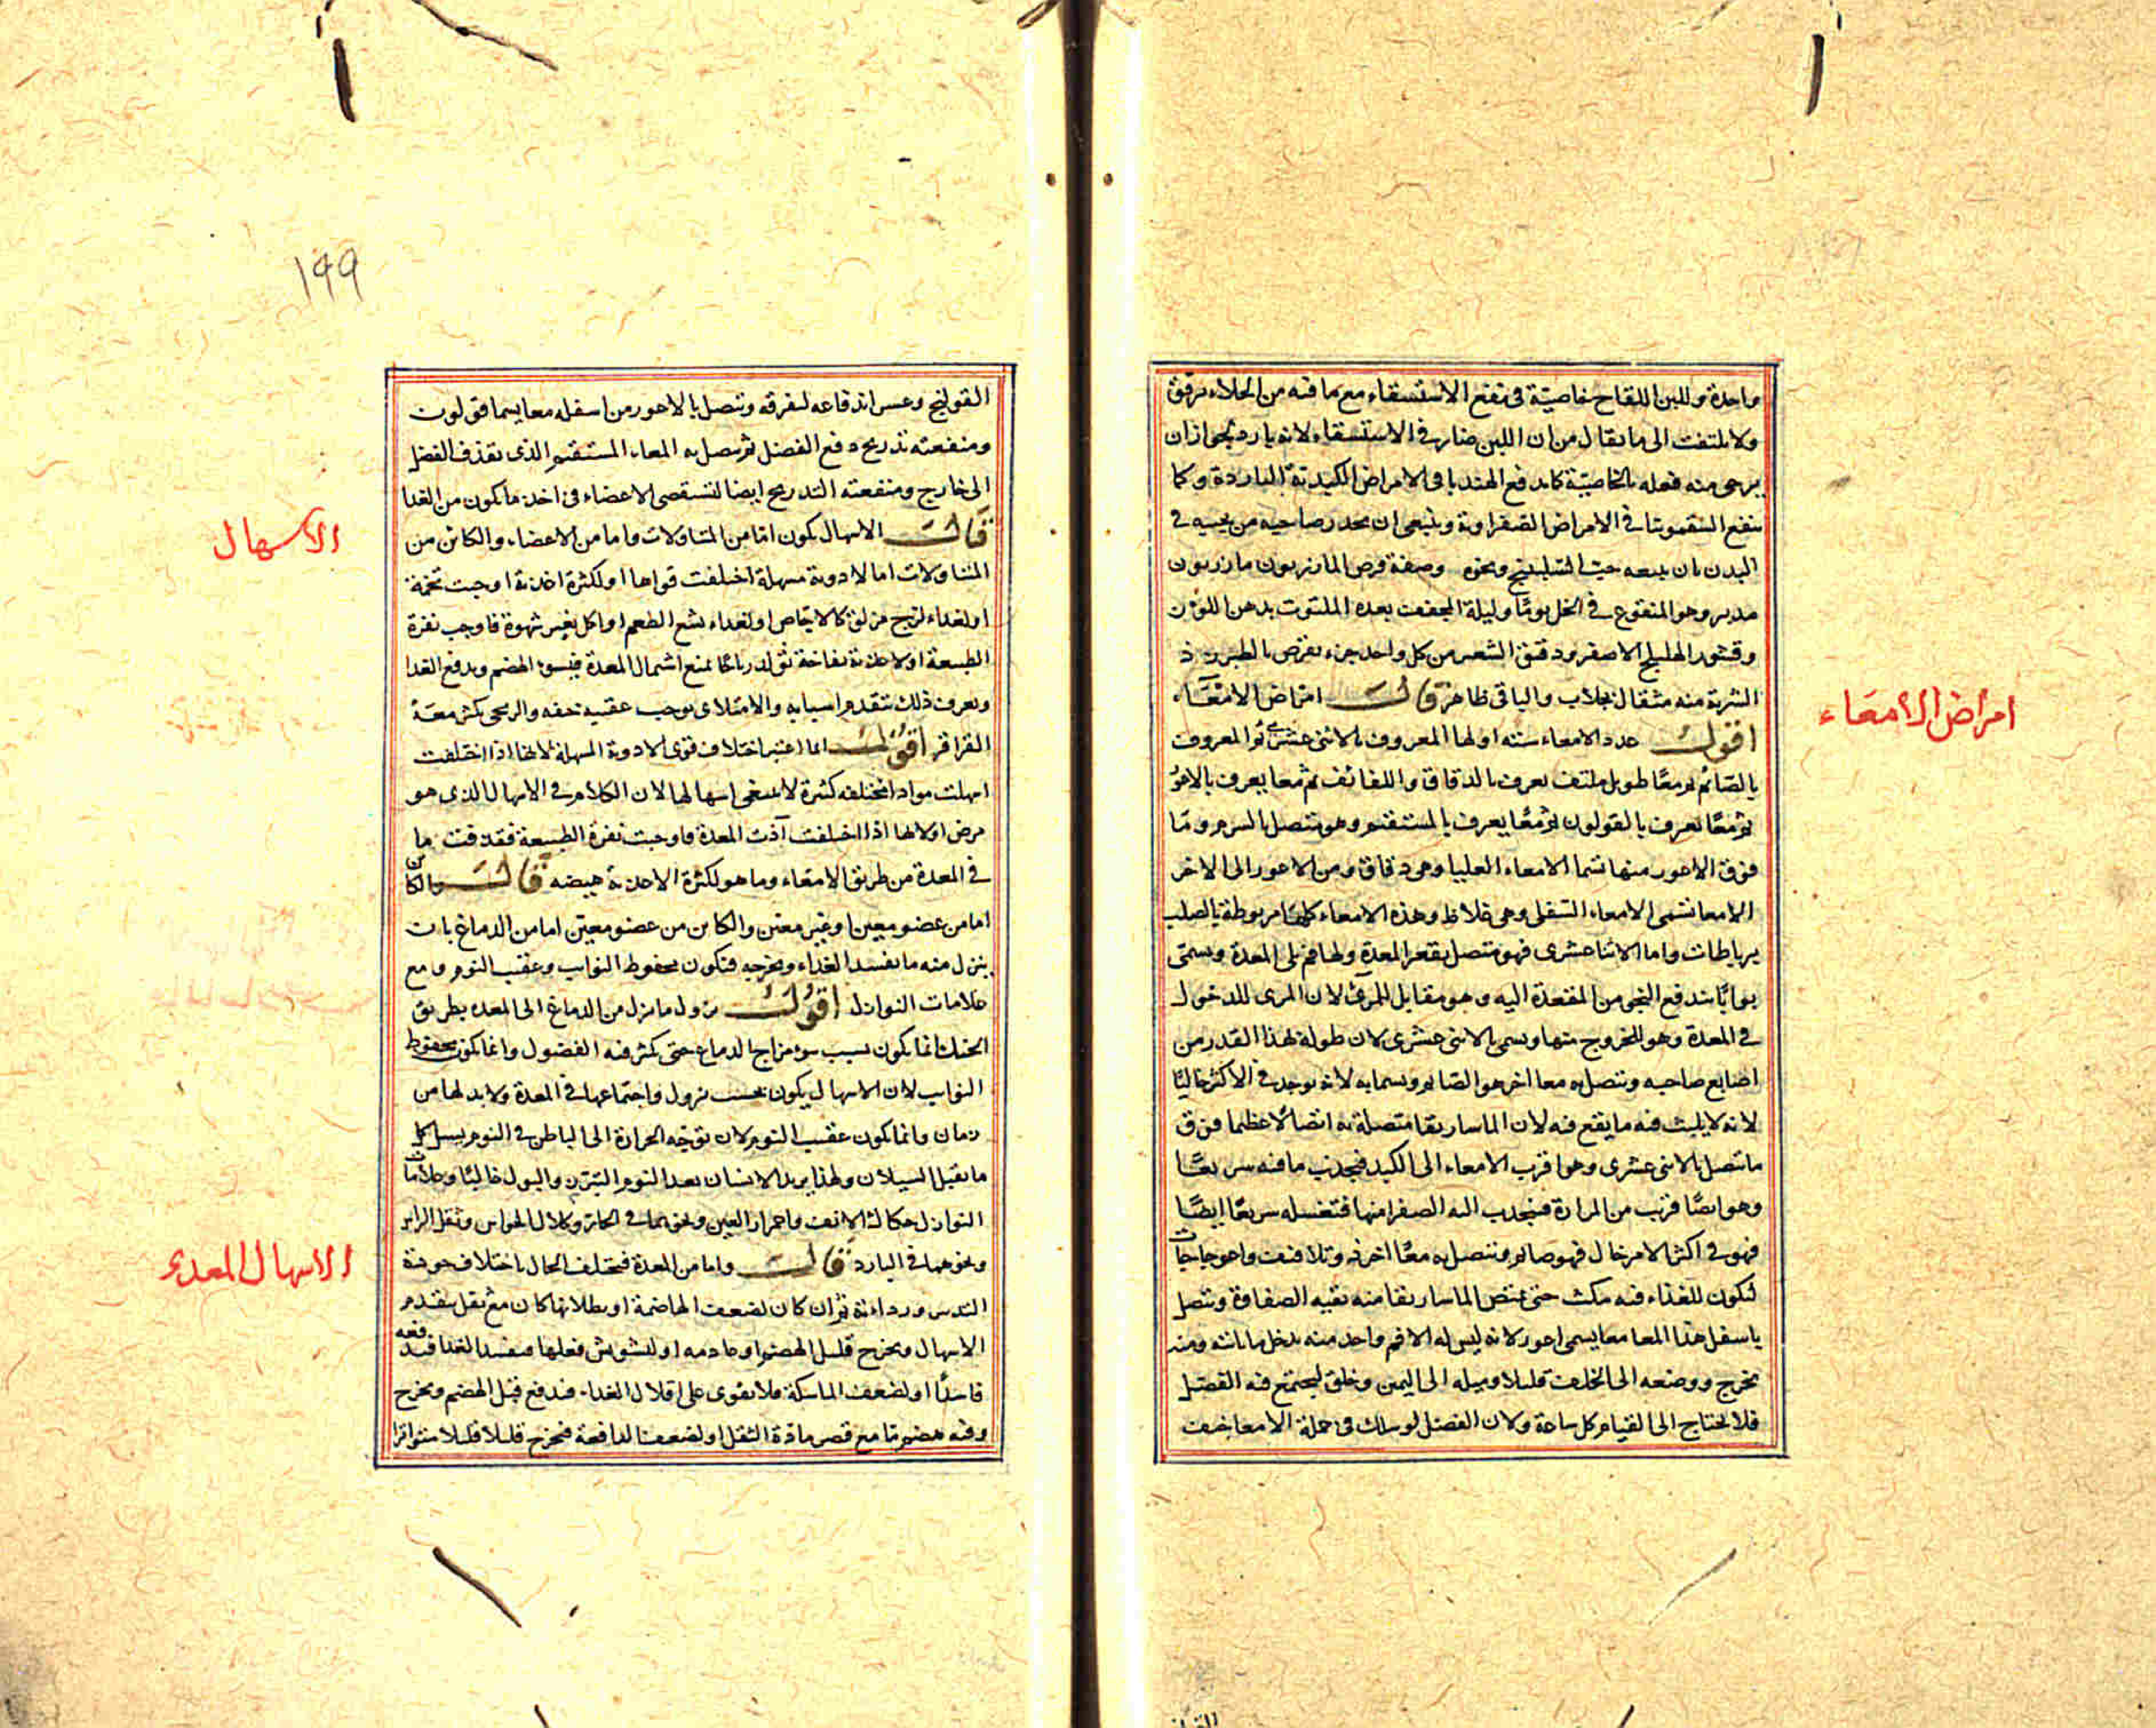 واحدة وللبن اللقاح خاصيّة في نفع الاستسقاء مع ما فيه من الجلاء برفق
ولا يلتفت الى ما يقال من ان اللبن ضار في الاستسقاء لانه بارد
يرجى منه فعله بالخاصيّة كما يدفع الهندبا في الامراض الكبدية الباردة وكما
ينفع السقمونيا في الامراض الصفراوية وينبغي ان يحذر صاحبه من حبسه في
البدن بان يتبعه حب ونحوه وصفة قرص المازريون مازريون
مدبر وهو المنقوع في الخل يومًا وليلة المجفف بعده الملتوت بدهن اللوز
وقشور الهليلج الاصفر ودقيق الشعير من كل واحد جزء يقرص بالطبرزد
الشربة منه مثقال بجلاب والباقي ظاهر قال امراض الامعاء
امراض الامعاء
اقول عدد الامعاء ستة اولها المعروف بالاثني عشري ثم المعروف
بالصائم ثم معًا طويل ملتف يعرف بالدقاق واللفائف ثم معا يعرف بالاعور
ثم معًا يعرف بالقولون ثم معًا يعرف بالمستقيم وهو متصل بالسرم وما
فوق الاعور منها تسما الامعاء العليا وهي دقاق ومن الاعور الى الاخر
الامعا تسمى الامعاء السفلى وهي غلاظ وهذه الامعاء كلها مربوطة بالصلب
برباطات واما الاثنا عشري فهو متصل بقعر المعدة ولها فم يلي المعدة ويسمى
بوابًا يندفع النجو من المعدة اليه وهو مقابل للمرئ لان المرى للدخول
في المعدة وهو للخروج منها ويسمى بالاثني عشري لان طوله بهذا القدر من
اصابع صاحبه ويتصل به معا اخر هو الصائم ويسما به لانه يوجد في الاكثر خاليًا
لانه لا يلبث فيه ما يقع فيه لان الماساريقا متصلة به اتصالا عظيما فوق
ما يتصل بالاثني عشري وهو اقرب الامعاء الى الكبد فيجذب ما فيه سريعًا
وهو ايضًا قريب من المرارة فينجذب اليه الصفرا منها فتغسله سريعًا ايضًا
فهو في اكثر الامر خال فهو صائم ويتصل به معًا اخر ذو تلافيف واعوجاجات
لتكون للغذاء فيه مكث حتى تمتص الماساريقا منه بقية الصفاوة ويتصل
باسفل هذا المعا معا يسمى اعور لانه ليس له الا فم واحد منه يدخل ما ياتيه ومنه
يخرج ووضعه الى الخلف قليلا وميله الى اليمين وخلق ليجتمع فيه الفضل
فلا يحتاج الى القيام كل ساعة ولان الفضل لو سلك في جملة الامعا خيف
١٩٩
القولنج وعسر اندفاعه لتفرقه ويتصل بالاعور من اسفله معا يسما قولون
ومنفعته تدريج دفع الفضل ثم يتصل به المعاء المستقيم الذي يقذف الفضل
الى خارج ومنفعته التدريج ايضا لتستقصي الاعضاء في اخذ ما يكون من الغذا
الاسهال
قال الاسهال يكون اما من المتناولات واما من الاعضاء والكائن من
المتناولات اما لادوية مسهلة اختلفت قواها او لكثرة اغذية اوجبت تخمة
او لغذاء لزج مزلق كالاجّاص او لغذاء بشع الطعم او اكل بغير شهوة فاوجب نفرة
الطبيعة او لاغذية نفاخة تولد رياحًا تمنع اشتمال المعدة فيسوء الهضم ويدفع الغذا
ويعرف ذلك بتقدم اسبابه والامتلائي يوجب عقيبه خفه والريحي يكثر معه
القراقر اقول انما اعتبر اختلاف قوى الادوية المسهلة لانها اذا اختلفت
اسهلت مواد مختلفه كثيرة لا ينبغي اسهالها لان الكلام في الاسهال الذي هو
مرض او لانها اذا اختلفت آذت المعدة فاوجبت نفرة الطبيعة فقذفت ما
في المعدة من طريق الامعاء وما هو لكثرة الاغذية هيضه قال والكائن
اما من عضو معين او غير معين والكاين من عضو معين اما من الدماغ بان
ينزل منه ما يفسد الغذاء ويخرجه فتكون محفوظ النوايب وعقيب النوم ومع
علامات النوازل اقول نزول ما ينزل من الدماغ الى المعده بطريق
الحنك انما يكون لسبب سوء مزاج الدماغ حتى يكثر فيه الفضول وانما يكون محفوظ
النوايب لان الاسهال يكون بحسب نزول واجتماعها في المعدة ولا بد لها من
زمان وانما يكون عقيب النوم لان توجه الحرارة الى الباطن في النوم يسيل كل
ما يقبل السيلان ولهذا يريد الانسان بعد النوم التبرز والبول غالبًا وعلامات
النوازل حكاك الانف واحمرار العين ونحوهما في الحارة وكلال الحواس وثقل الراس
ونحوهما في البارد قال واما من المعدة فتختلف الحال باختلاف جودة
الاسهال المعدي
التدبير ورداءته ثم ان كان لضعف الهاضمة او بطلانها كان مع ثقل يتقدم
الاسهال ويخرج قليل الهضم او عادمه او لتشوش فعلها فيفسد الغذا فيدفعه
فاسدًا او لضعف الماسكة فلا يقوى على اقلال الغداء فيدفع قبل الهضم ويخرج
وفيه هضم ما مع قصر مدة الثقل او لضعف الدافعة فيخرج قليلا قليلا متواترا